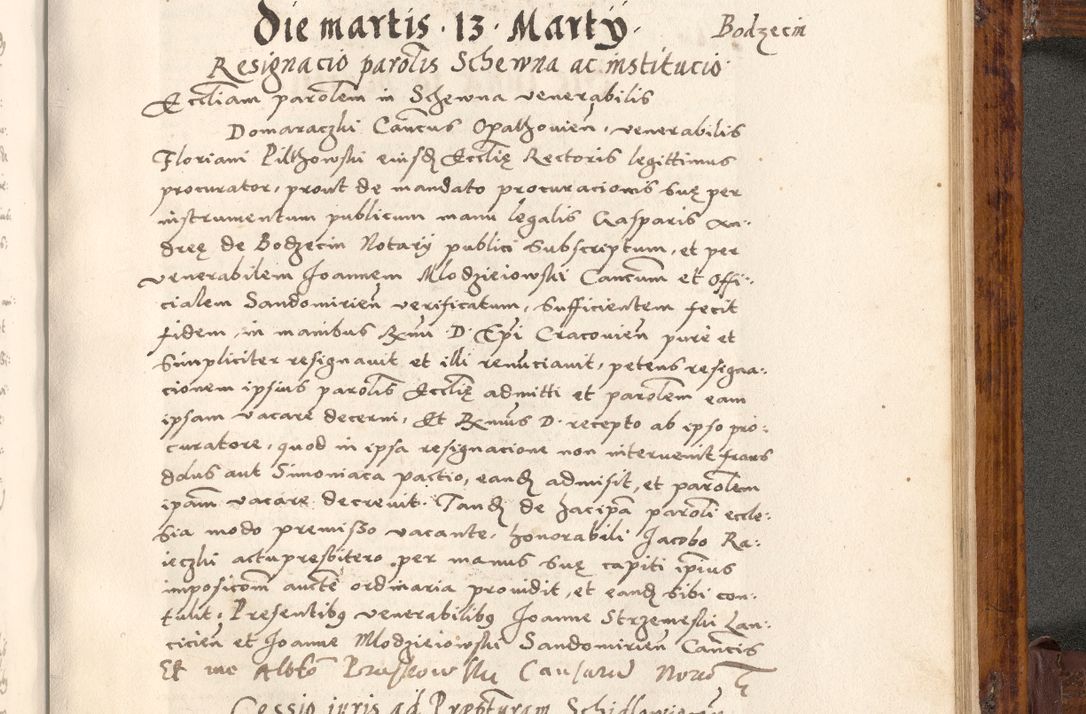 Die martis · 13 · Martÿ ·
Bodzecin
Resignacio parolis Schewna ac institucio ·
Eccliam parolem in Schewna venerabilis
Domaraczki Cancus Opathovien, venerabilis
Floriani Pilthowski eiusd Ecclię Rectoris legittimus
procurator, prout de mandato procuracionis suę per
instrumentum publicum manu legalis Gasparis An:
dreę de Bodzecin Notarÿ publici subscriptum, et per
venerabilem Joannem Mlodzieiowski Cancum et Offi:
cialem Sandomirien verificatum, sufficientem fecit
fidem, in manibus Rxmi D. Epi Cracovien pure et
simpliciter resignavit et illi renunciavit, petens resigna:
cionem ipsius parolis Ecclię admitti et parolem eam
ipsam vacare decerni, Et Rxmus D. recepto ab ipso pro:
curatore, quod in ipsa resignacione non intervenit fraus
dolus aut Simoniaca pactio, eand admisit, et parolem
ipam vacare decrevit. Tand de hacipa paroli eccle:
sia modo premisso vacante, honorabili Jacobo Ra:
ieczki actu presbitero per manus suę capiti ipius
imposicom aucte ordinaria providit, et eand sibi con:
tulit, Presentibg venerabilibg Joanne Strzemeski Lan:
cicien et Joanne Mlodzieiowski Sandomirien Cancis
Et me Albto Causarum Noto
Cessio iuris ad Prępturam Schidlovien